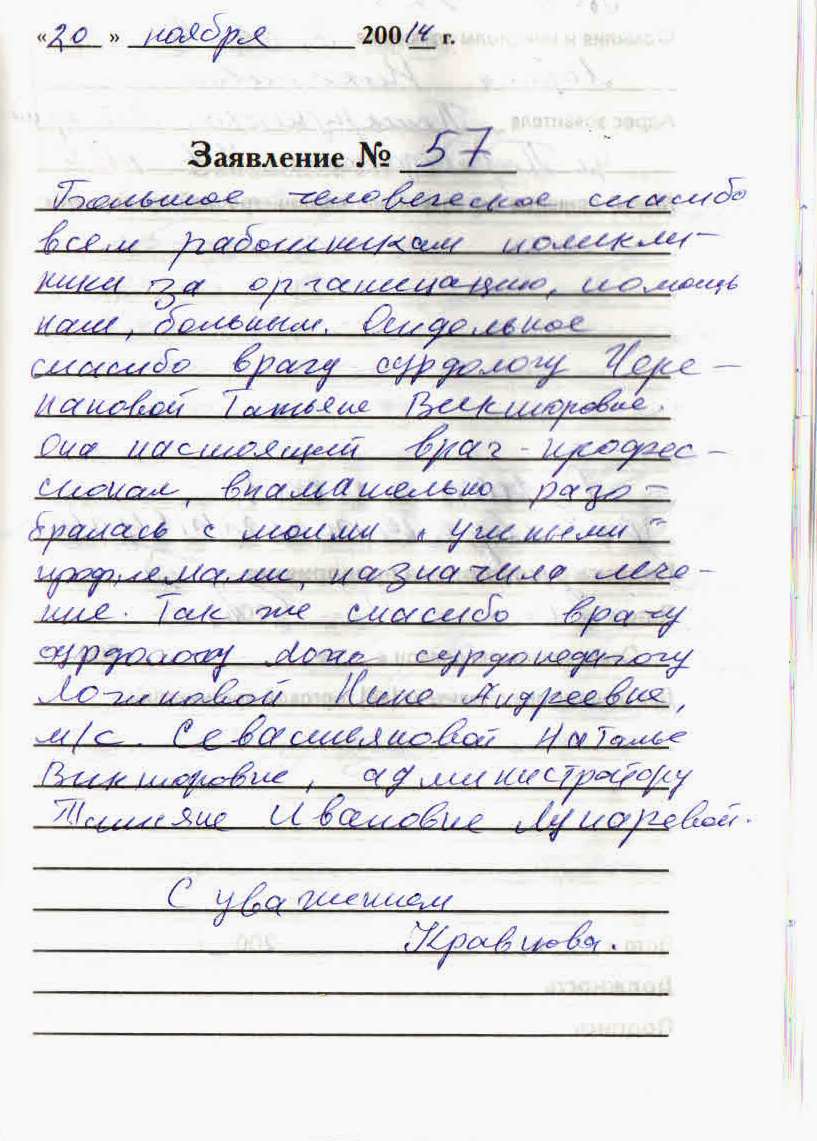 «20» ноября 20014 г.
Заявление № 57
Большое человеческое спасибо
всем работникам поликли-
ники за организацию, помощь
нам, больным. Отдельное
спасибо врачу сурдологу Чере-
пановой Татьяне Викторовне.
Она настоящий врач - профес-
сионал, внимательно разо-
бралась с моими „ушными"
проблемами, назначила лече-
ние. Так же спасибо врачу
сурдологу сурдопедагогу
Логиновой Нине Андреевне,
м/с. Севастьяновой Наталье
Викторовне, администратору
Татьяне Ивановне
С уважением
Кравцова.